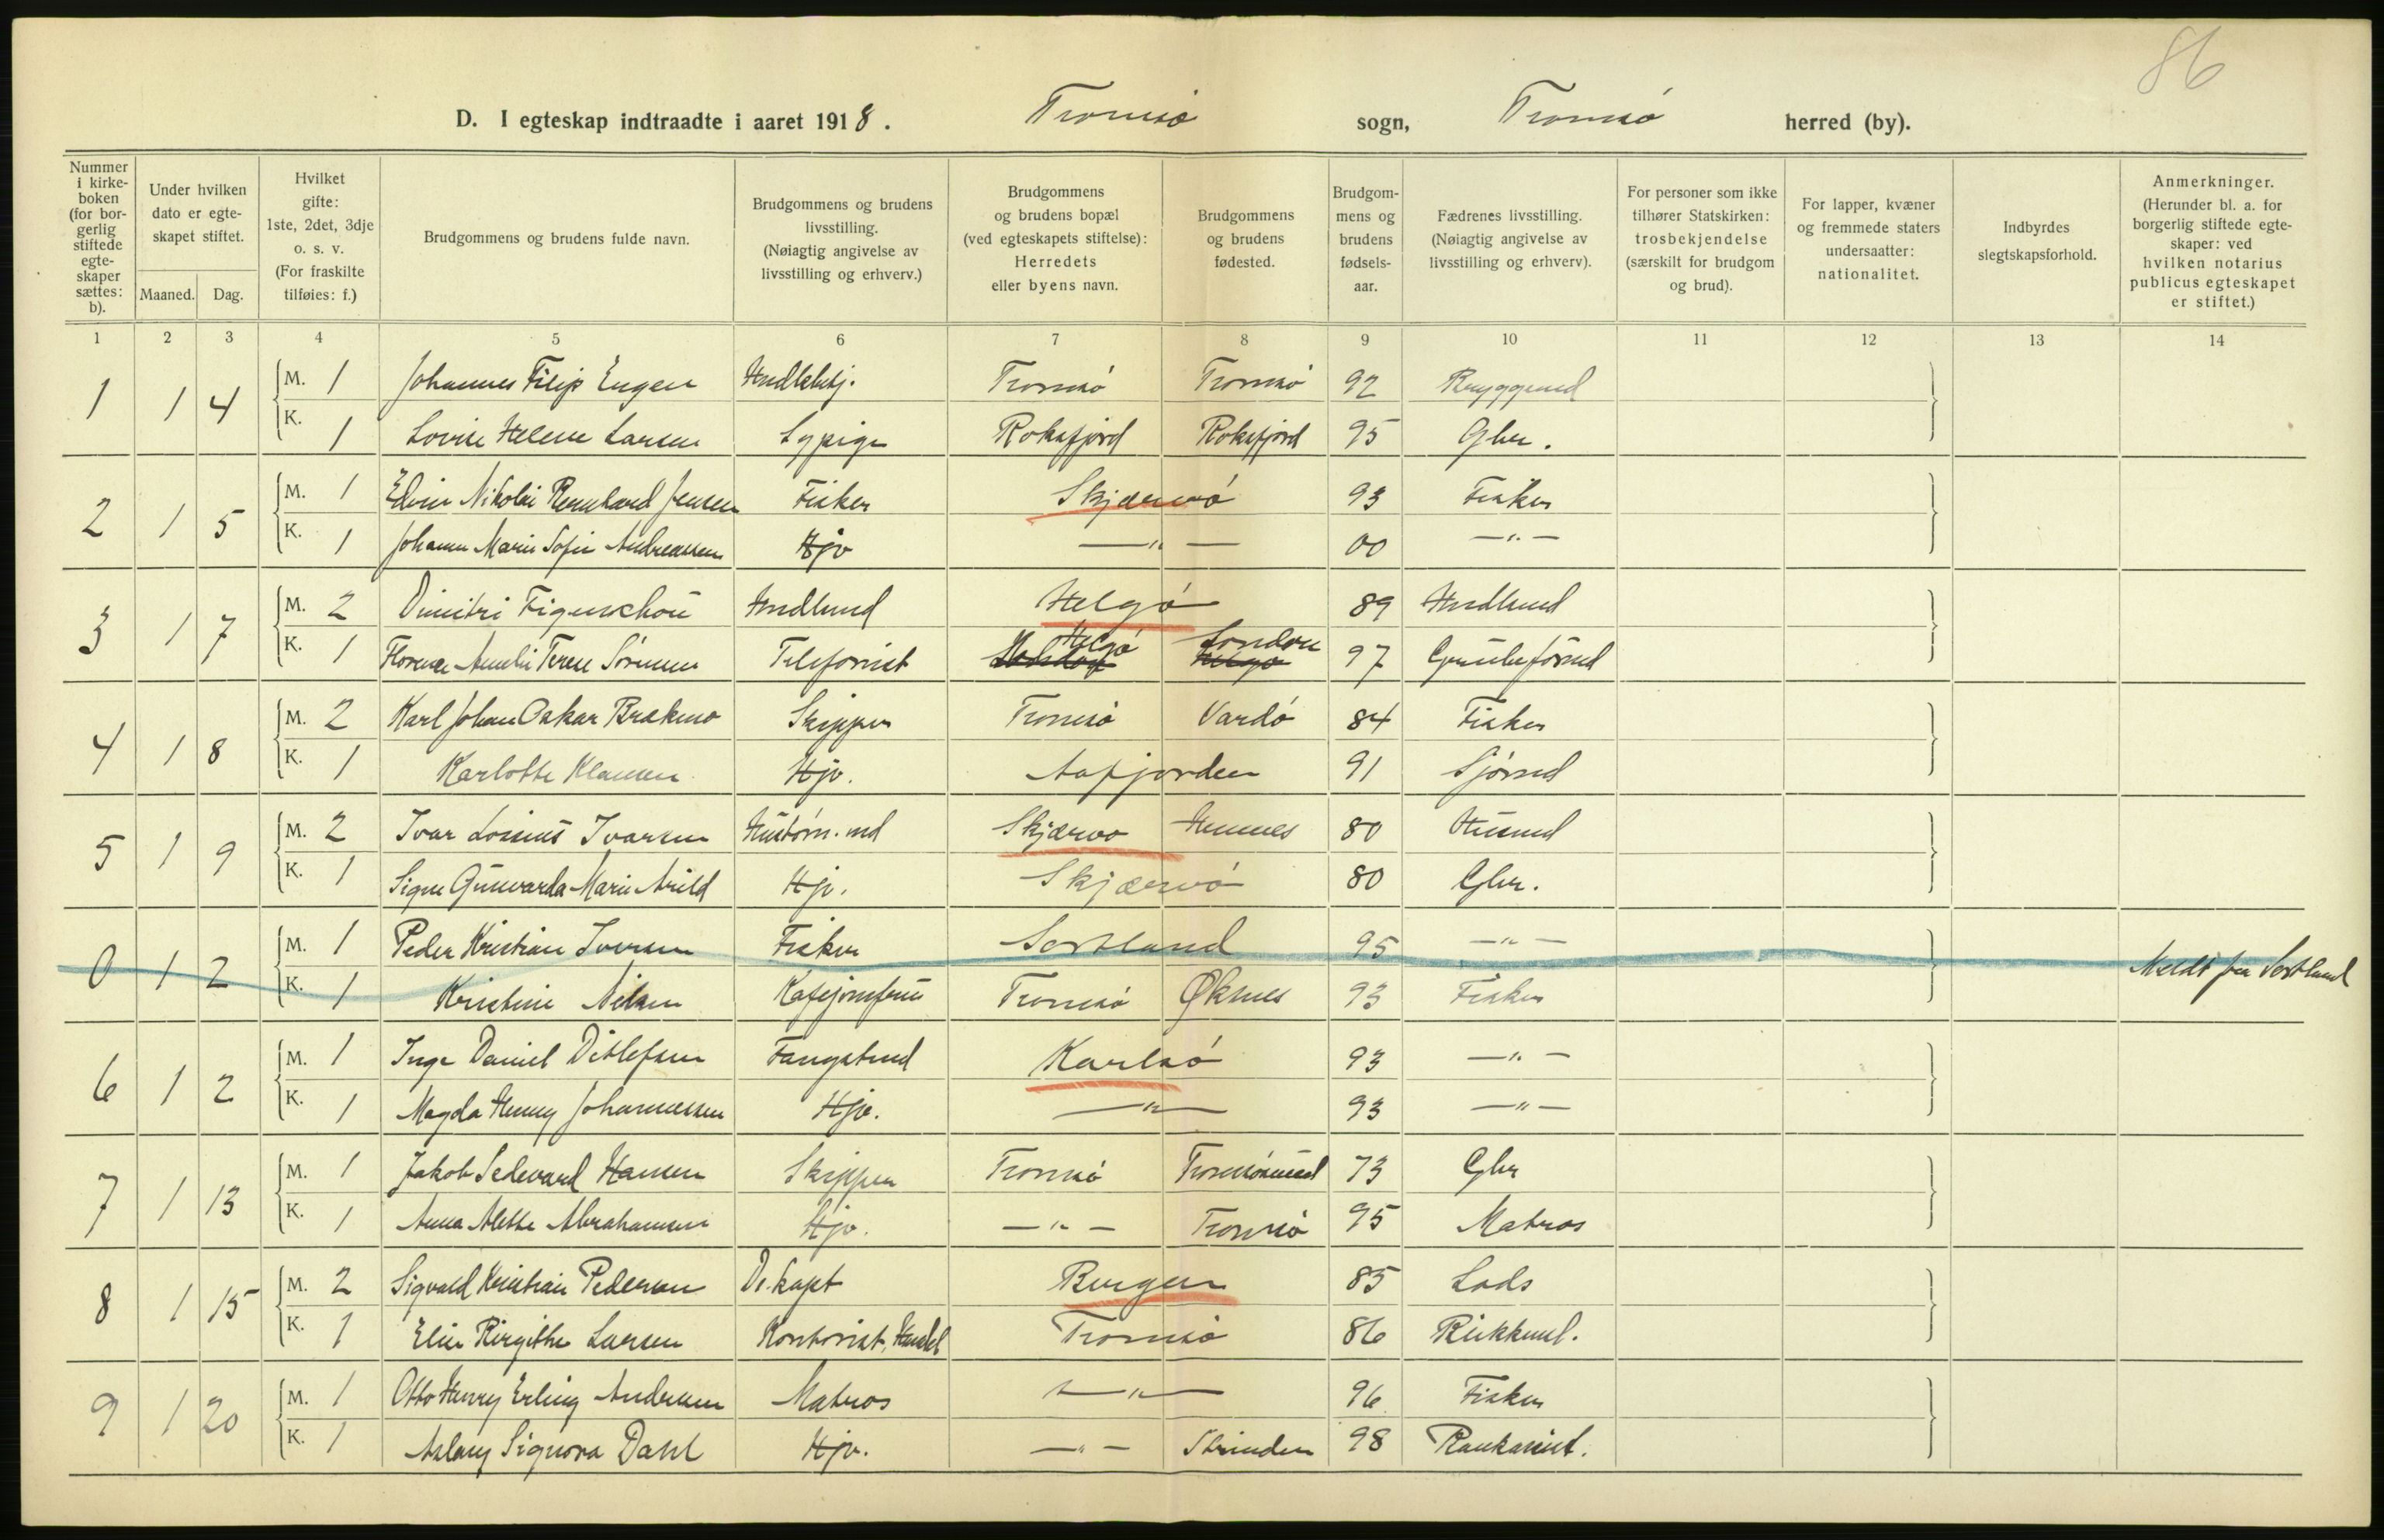 86
D. I egteskap indtraadte i aaret 1918. Tromsø sogn, Tromsø herred (by).
Nummer i kirkeboken (for borgerlig stiftede egteskaper sættes: b).
Under hvilken dato er egteskapet stiftet.
Maaned. Dag.
Hvilket gifte: 1ste, 2det, 3dje o. s. v. (For fraskilte tilføies: f.)
Brudgommens og brudens fulde navn.
Brudgommens og brudens livsstilling. (Nøiagtig angivelse av livsstilling og erhverv.)
Brudgommens og brudens bopæl (ved egteskapets stiftelse): Herredets eller byens navn.
Brudgommens og brudens fødested.
Brudgommens og brudens fødselsaar.
Fædrenes livsstilling. (Nøiagtig angivelse av livsstilling og erhverv).
For personer som ikke tilhører Statskirken: trosbekjendelse (særskilt for brudgom og brud).
For lapper, kvæner og fremmede staters undersaatter: nationalitet.
Indbyrdes slegtskapsforhold.
Anmerkninger. (Herunder bl. a. for borgerlig stiftede egteskaper: ved hvilken notarius publicus egteskapet er stiftet.)
1 2 3 4 5 6 7 8 9 10 11 12 13 14
1 1 4 M. 1 Johannes Filip Engen Hndlsbetj. Tromsø Tromsø 92 Bryggemd
K. 1 Lovise Helene Larsen Sypige Roksfjord Roksfjord 95 Gbr.
2 1 5 M. 1 Edvin Nikolai Bernhard Jensen Fisker Skjærvø 93 Fisker
K. 1 Johanna Marie Sofie Andreassen Hjv —"— 00 —"—
3 1 7 M. 2 Dimitri Figenschou Hndlsmd Helgø 89 Hndlsmd
K. 1 Florence Amelie Terese Sørensen Telefonist Helgø London 97 Grubeformd
4 1 8 M. 2 Karl Johan Oskar Brekmo Skipper Tromsø Vardø 84 Fisker
K. 1 Karlotte Klausen Hjv. Aafjorden 91 Sjømd
5 1 9 M. 2 Ivar Losius Ivarsen Hustøm.md Skjærvø Hemnes 80 Husmd
K. 1 Signe Gunvarda Marie Arild Hjv. Skjærvø 80 Gbr.
0 1 2 M. 1 Peder Kristian Iversen Fisker Sortland 95 —"—
K. 1 Kristine Nilsen Kafejomfru Tromsø Øksnes 93 Fisker
Meldt fra Sortland
6 1 2 M. 1 Inge Daniel Ditlefsen Fangstmd Karlsø 93 —"—
K. 1 Magda Henny Johannessen Hjv. —"— 93 —"—
7 1 13 M. 1 Jakob Sedevard Hansen Skipper Tromsø Tromsøsund 73 Gbr
K. 1 Anna Alette Abrahamsen Hjv. —"— Tromsø 95 Matros
8 1 15 M. 2 Sigvald Kristian Pedersen Ds.kapt Bergen 85 Lods
K. 1 Elise Birgithe Larsen Kontorist, Handel Tromsø 86 Rækkeml.
9 1 20 M. 1 Otto Henry Erling Andersen Matros —"— 96 Fisker
K. 1 Aslaug Signora Dahl Hjv. —"— Strinden 98 Bankassist.